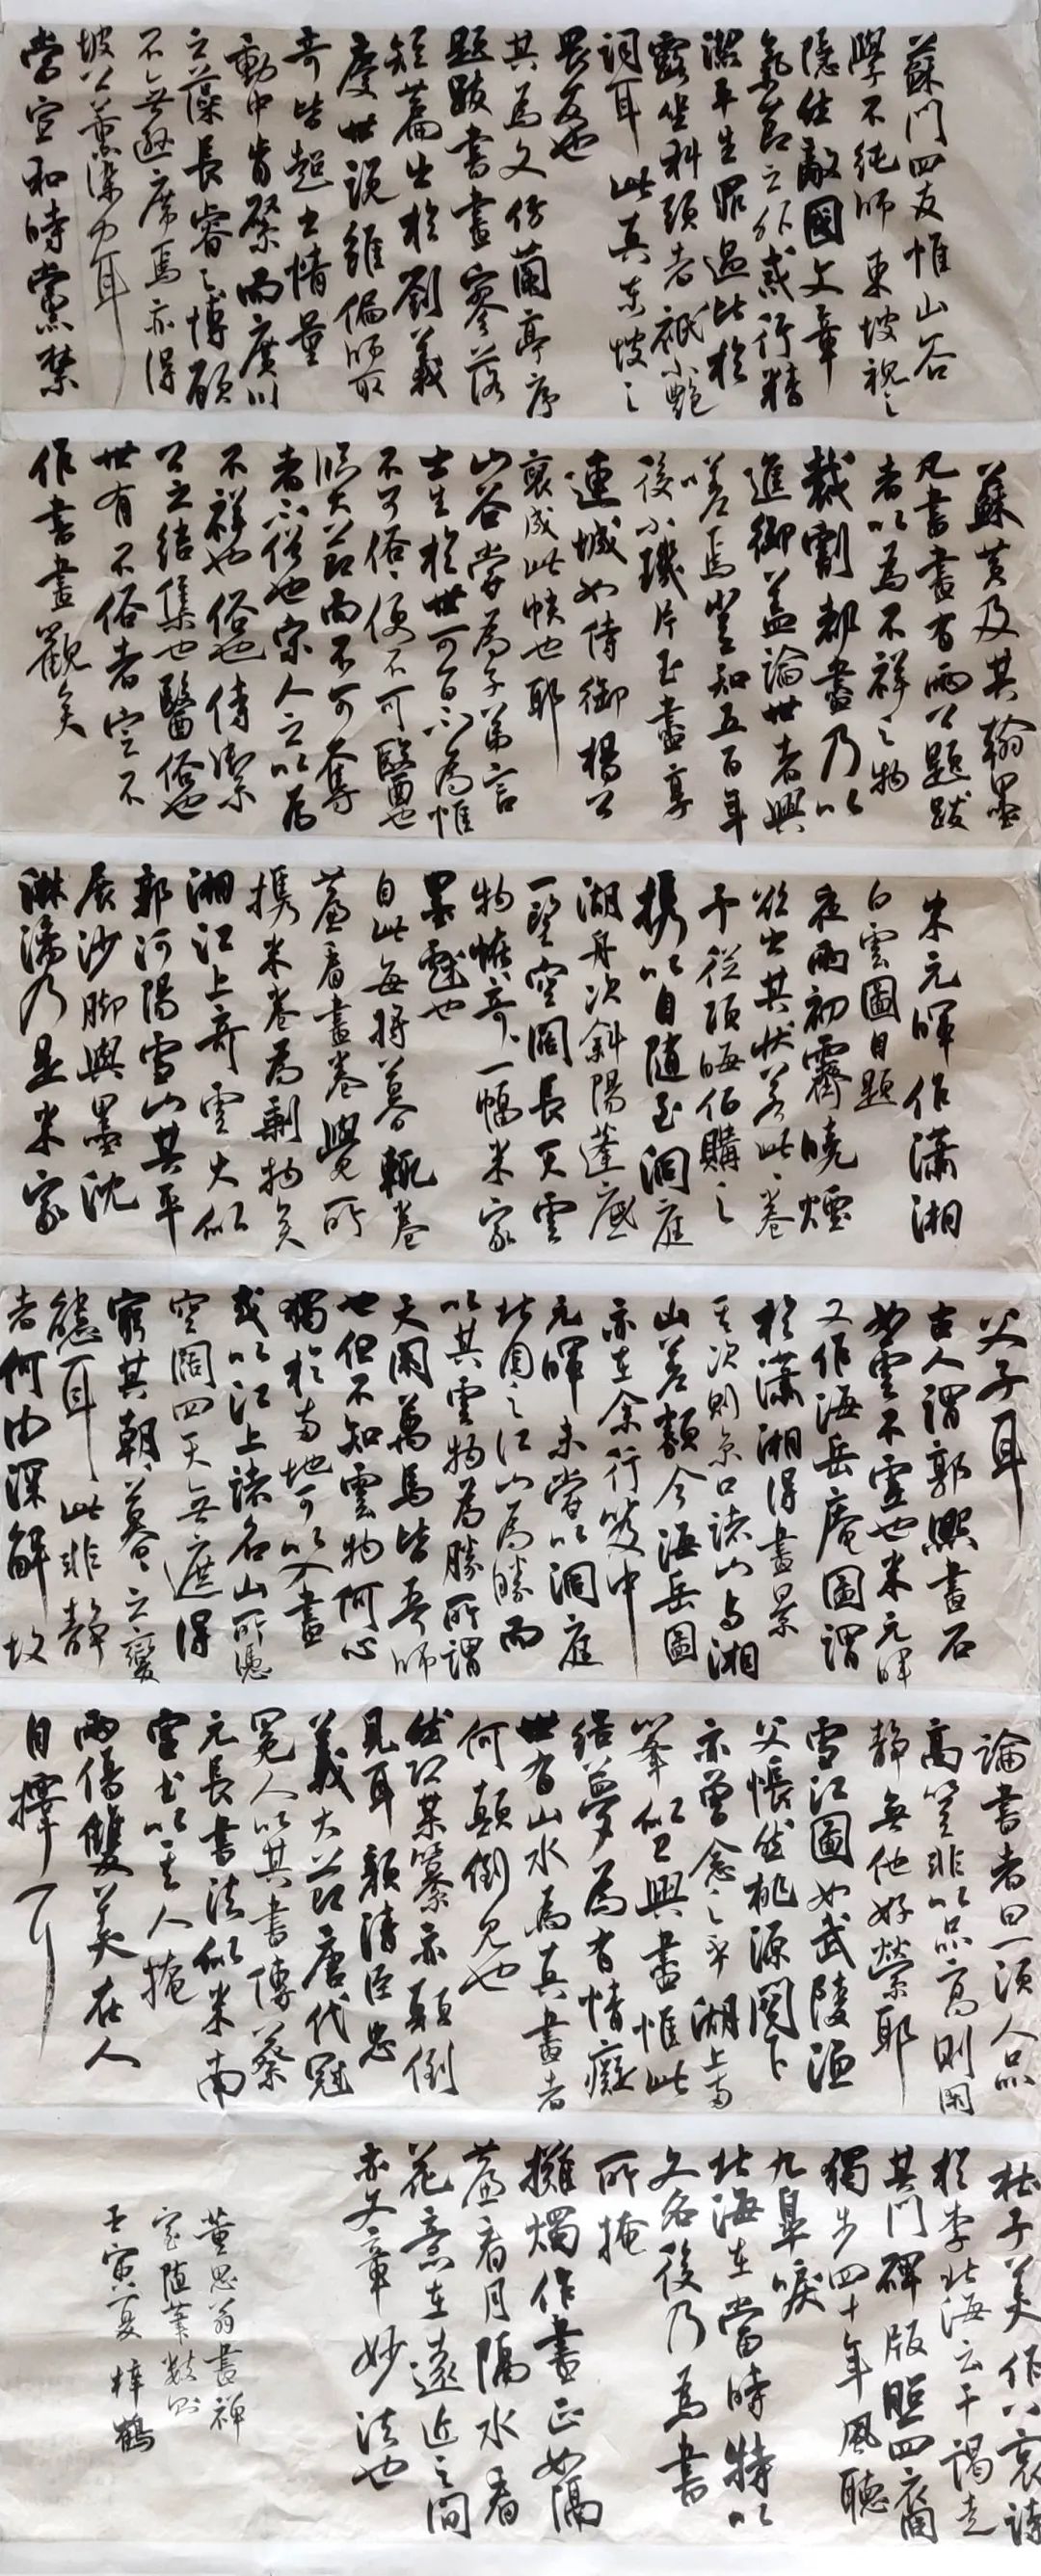 蘇門四友惟山谷
學不純師東坡視之
隱若敵國文章
氣節之外戒行精
潔平生罪過比於
露坐科頭者祇小艷
詞耳此真東坡之
畏友也
其為文仿蘭亭序
題跋書畫寥落
短篇出於劉義
慶世說雖偏師取
奇皆超出情量
動中肯綮而廣川
之藻長睿之博頗
不無避席焉亦得
坡公薰染力耳
當宣和時黨禁
蘇黃及其翰墨
凡書畫有兩公題跋
者以為不祥之物
裁割都盡乃以
進御蓋論世者興
嗟焉豈知五百年
後小璣片玉盡享
連城如侍御楊公
裒成此帙也耶
山谷嘗為子弟言
士生於世可百不為惟
不可俗俗便不可醫也
臨大節而不可奪
者不俗也宋人之以為
不祥也俗也侍御
公之結集也醫俗也
世有不俗者定不
作書畫觀矣
米元暉作瀟湘
白雲圖自題
夜雨初霽曉煙
欲出其狀若此此卷
予從項晦伯購之
攜以自隨至洞庭
湖舟次斜陽蓬底
一望空闊長天雲
物怪怪奇奇一幅米家
墨戲也
自此每將暮輒卷
簾看畫卷覺所
攜米卷為剩物矣
湘江上奇雲大似
郭河陽雪山其平
展沙腳與墨沈
淋漓乃是米家
父子耳
古人謂郭熙畫石
如雲不虛也米元暉
又作海岳庵圖謂
於瀟湘得畫景
其次則京口諸山與湘
山差類今海岳圖
亦在余行笈中
元暉未嘗以洞庭
北固之江山為勝而
以其雲物為勝所謂
天閑萬馬皆吾師
也但不知雲物何心
獨於兩地可以入畫
或以江上諸名山所憑
空闊四天無遮得
窮其朝朝暮暮之變
態耳此非靜
者何由深解故
論書者曰一須人品
高豈非以品高則閑
靜無他好縈耶
雪江圖如武陵漁
父悵然桃源閣下
亦曾念之乎湖上兩
峯似已興盡惟此
結夢為有情癡
世有山水為真畫者
何顛倒見也
然項某纂亦顛倒
見耳顏清臣忠
義大節唐代冠
冕人以其書傳蔡
元長書法似米南
宮書以其人掩
兩傷雙美在人
自擇耳
杜子美作八哀詩
於李北海云干謁走
其門碑版照四裔
獨步四十年風聽
九皋唳
北海在當時特以
文名後乃為書
所掩
攤燭作畫正如隔
簾看月隔水看
花意在遠近之間
亦文章妙法也
董思翁畫禪
室隨筆數則
壬寅夏梓鶴